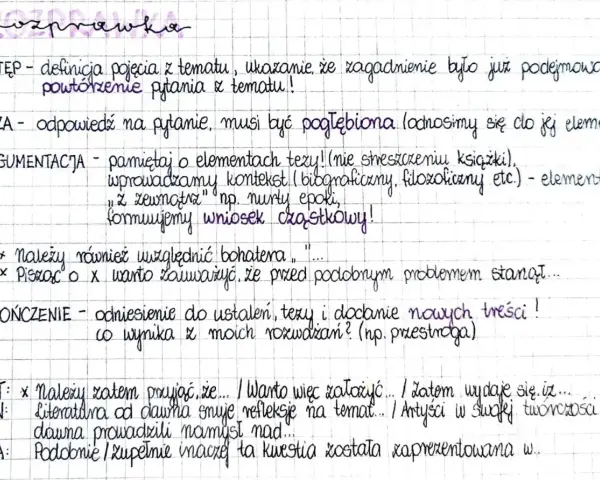 rozprawka
TĘP - definicja pojęcia z tematu, ukazanie, że zagadnienie było już podejmowa
powtórzenie pytania z tematu!
ZA - odpowiedź na pytanie, musi być pogłębiona (odnosimy się do jej elem
GUMENTACJA - pamiętaj o elementach tezy! (nie streszczeniu książki),
wprowadzamy kontekst (biograficzny, filozoficzny etc.) - element
"z zewnątrz" np. nurty epoki,
formułujemy wniosek cząstkowy!
* Należy również uwzględnić bohatera „ "...
* Pisząc o X warto zauważyć, że przed podobnym problemem stanął...
OŃCZENIE - odniesienie do ustaleń, tezy i dodanie nowych treści!
co wynika z moich rozważań? (np. przestroga)
T: x Należy zatem przyjąć, że... / Warto więc założyć... / Zatem wydaje się, iż...
W: Literatura od dawna snuje refleksje na temat... / Artyści w swojej twórczości
dawna prowadzili namysł nad...
A: Podobnie / zupełnie inaczej ta kwestia została zaprezentowana w..